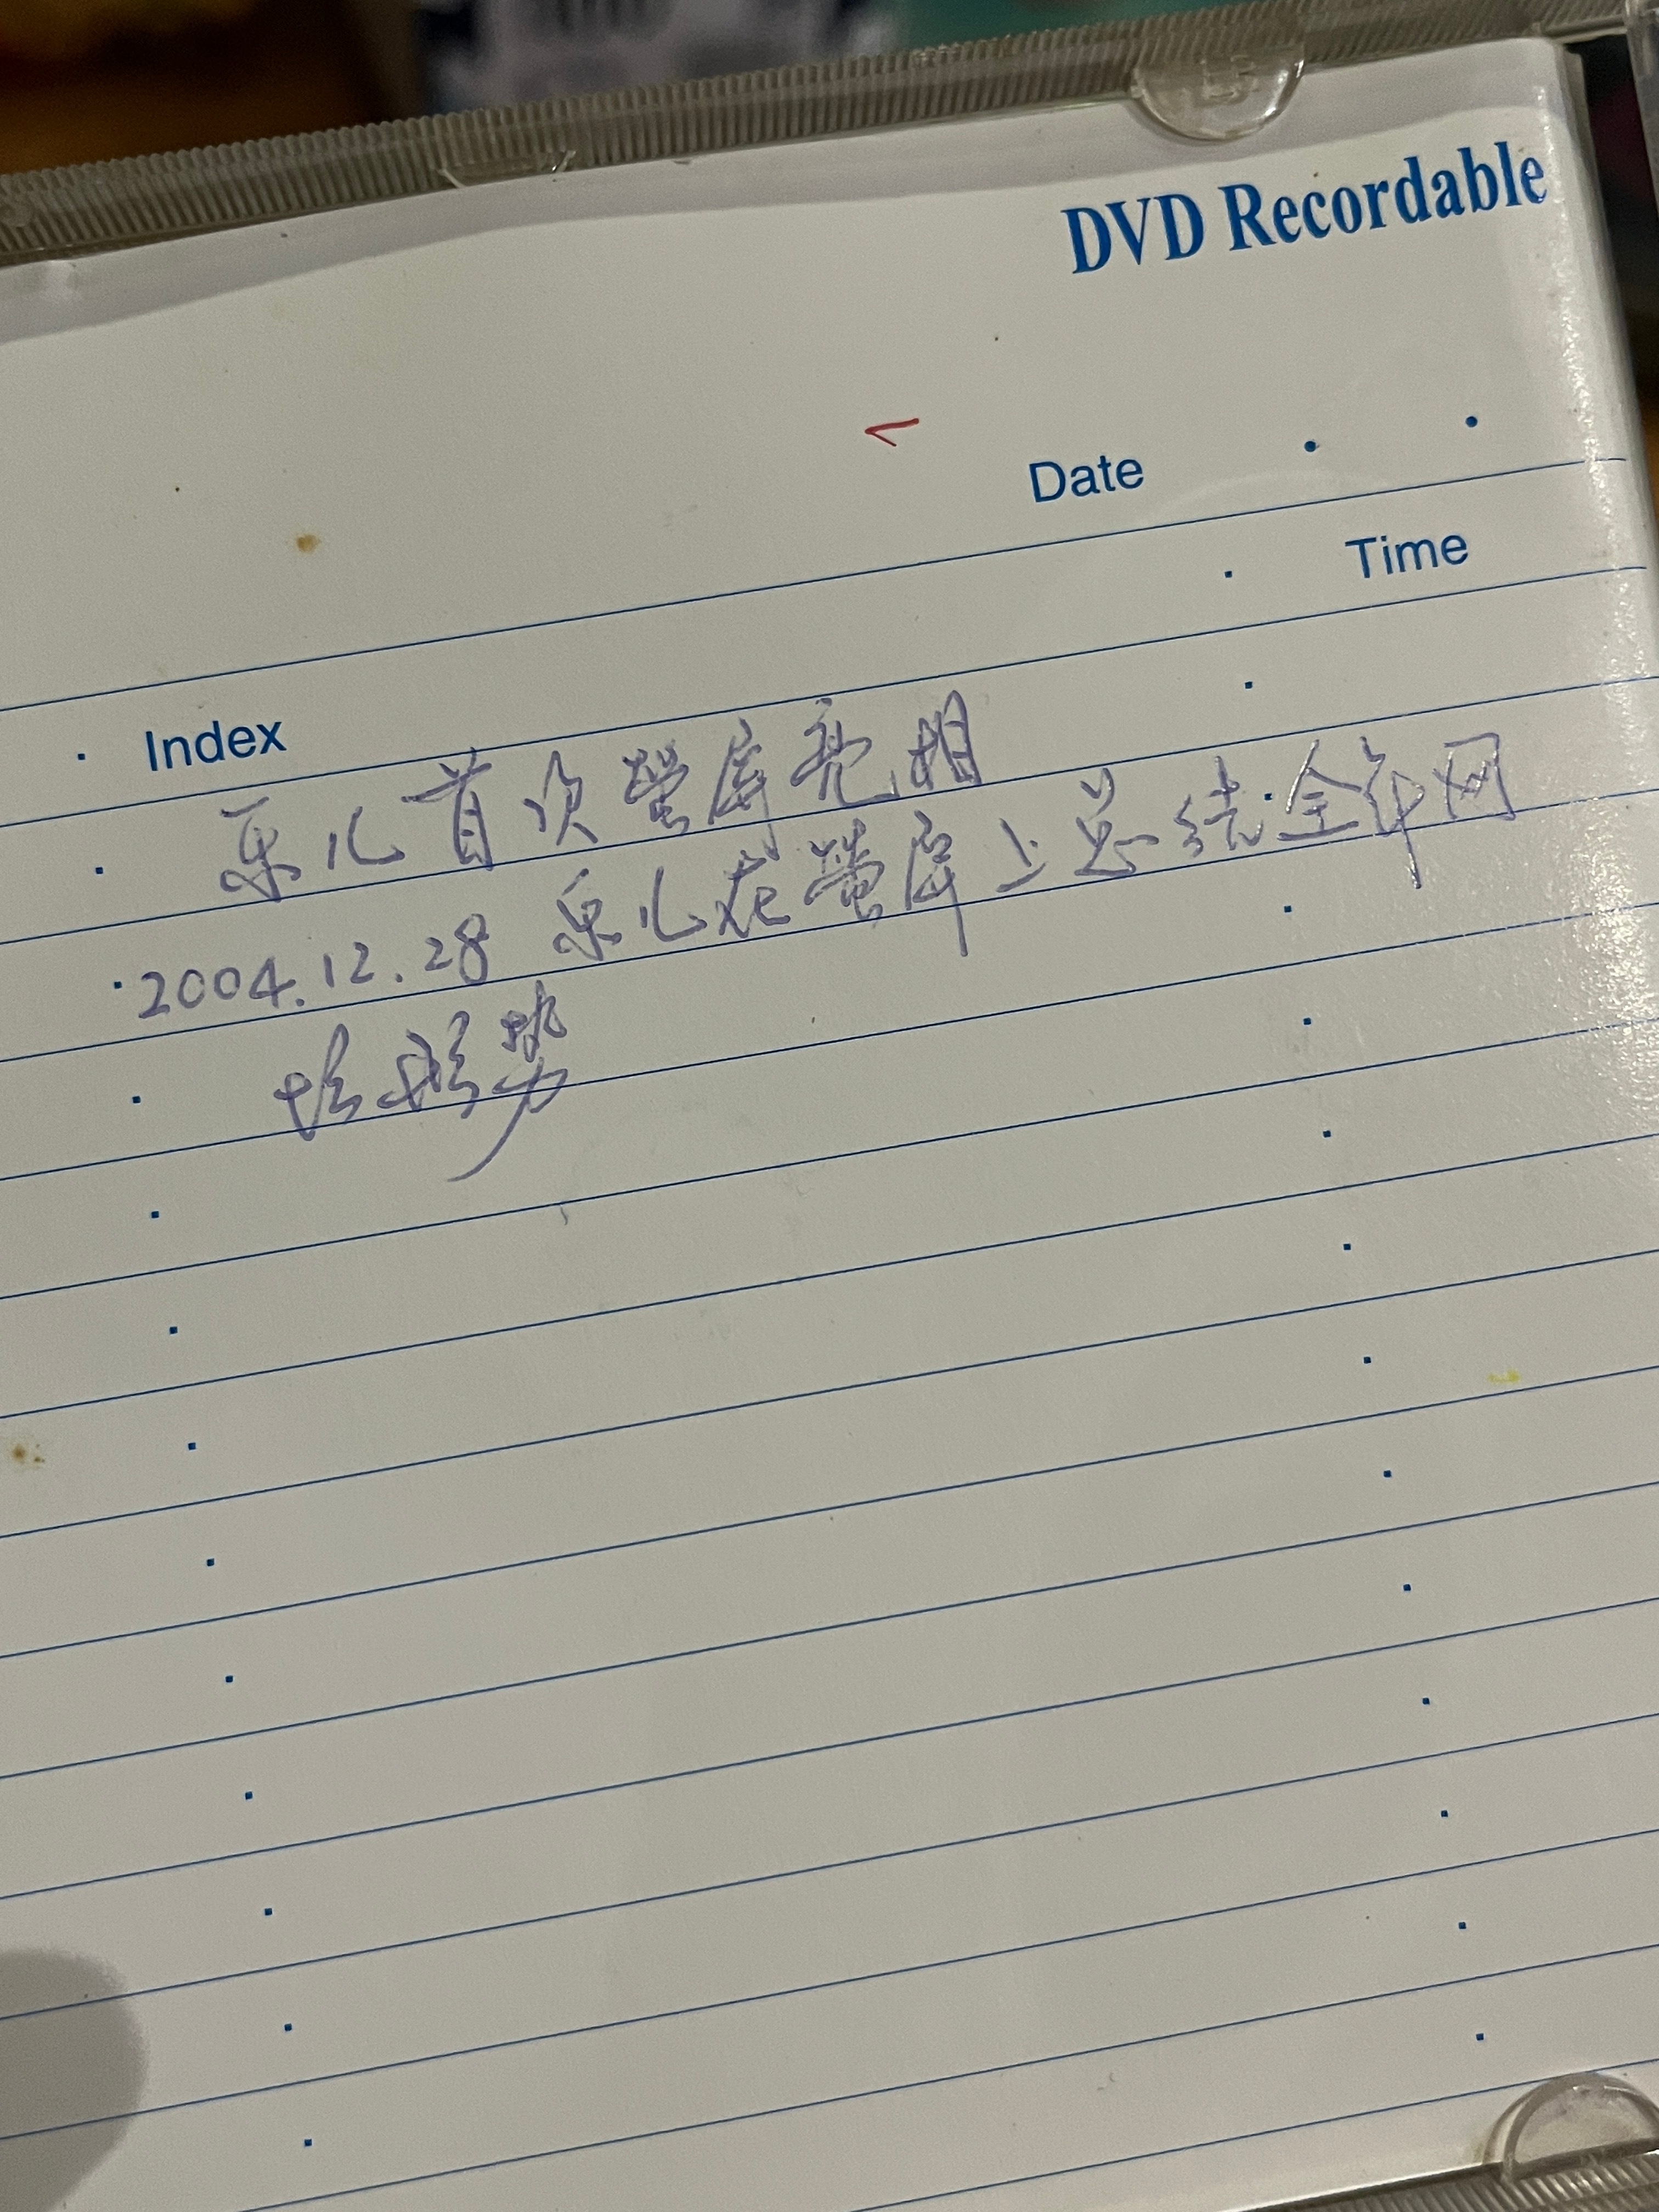 DVD Recordable
Date
Time
Index
乐儿首次萤屏亮相
2004.12.28 乐儿在萤屏上总结全年网
络形势